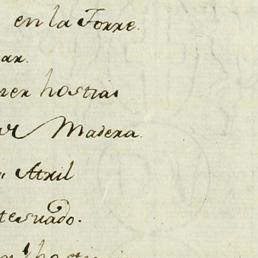 en la Torre.
ar.
hostias
Madera.
Atril
tesuado.